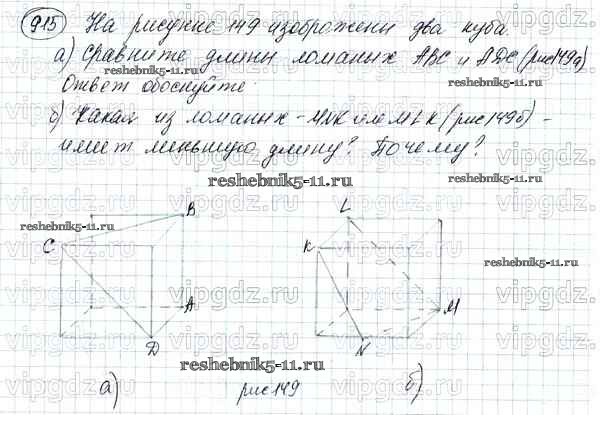 915 На рисунке 149 изображены два куба.
а) Сравните длины ломаных ABC и ADC (рис149а)
reshebnik5-11.ru
Ответ обоснуйте.
б) Какая из ломаных - MNK или MLK (рис149б) -
имеет меньшую длину? Почему?
reshebnik5-11.ru
reshebnik5-11.ru
B
L
reshebnik5-11.ru
C
K
reshebnik5-11.ru
A
M
vipgdz.ru
D
N
reshebnik5-11.ru
а)
рис149
б)